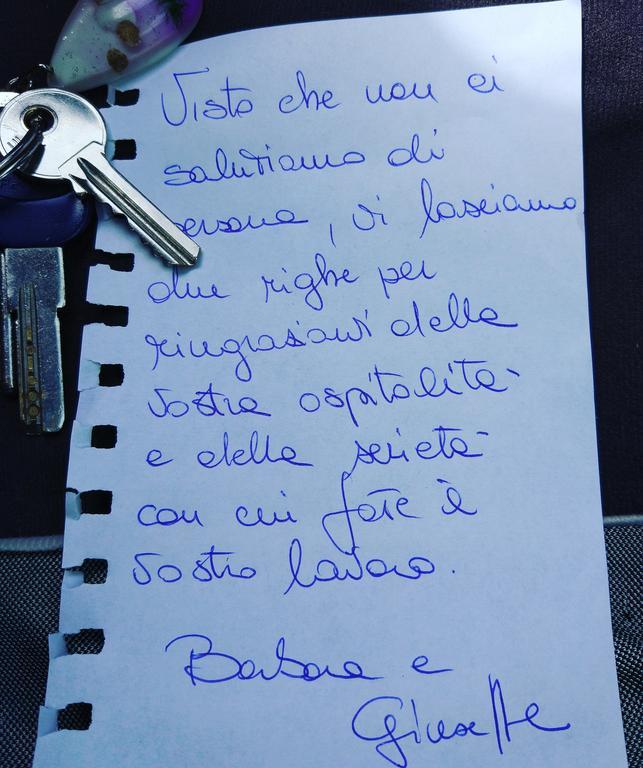 Visto che non ci
salutiamo di
persona, vi lasciamo
due righe per
ringraziarvi della
vostra ospitalità
e della serietà
con cui fate il
vostro lavoro.
Barbara e
Giuseppe